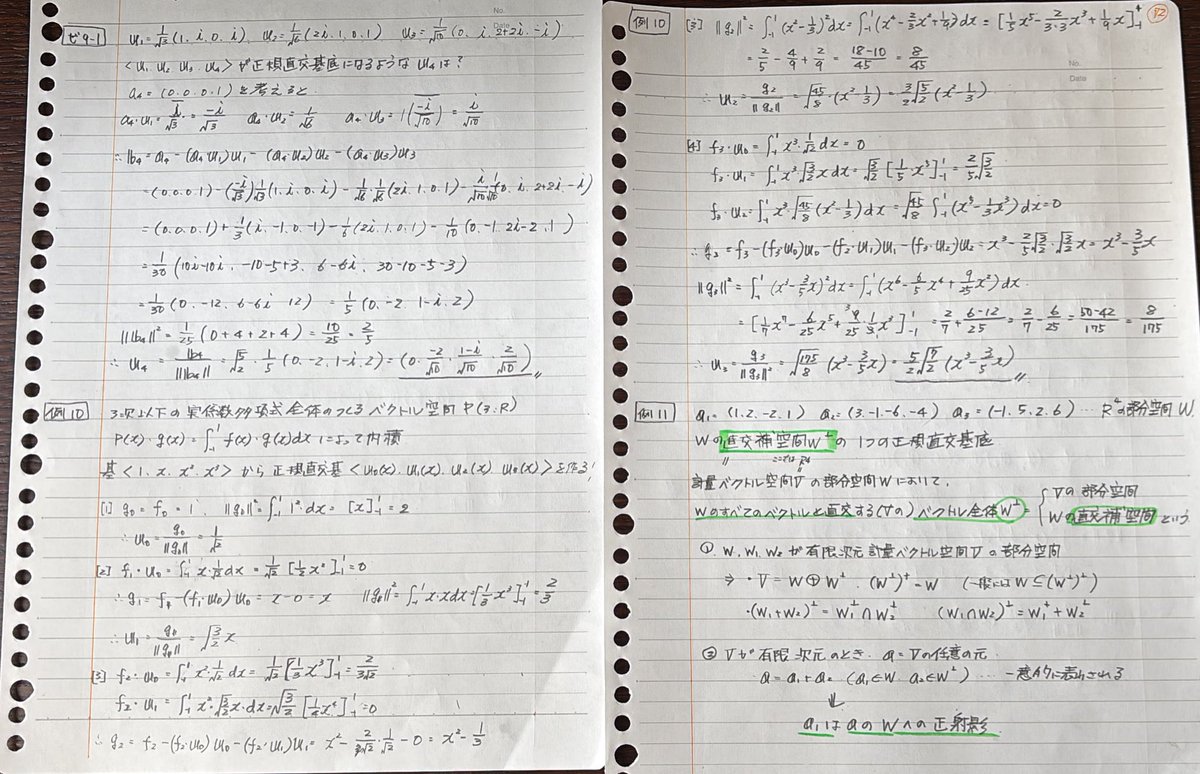 No.
Date
ビター1 u₁=1/√3(1, i, 0, i) u₂=1/√6(2i, 1, 0, 1) u₃=1/√10(0, i, 2+2i, -i)
<u₁ u₂ u₃ u₄>が正規直交基底になるような u₄は?
a₄=(0,0,0,1)を考えると
a₄・u₁=i/√3=-i/√3 a₄・u₂=1/√6 a₄・u₃=1(-i/√10)=i/√10
∴ b₄=a₄-(a₄・u₁)u₁-(a₄・u₂)u₂-(a₄・u₃)u₃
=(0,0,0,1)-(-i/√3)1/√3(1,i,0,i)-1/√6・1/√6(2i,1,0,1)-i/√10 1/√10(0,i,2+2i,-i)
=(0,0,0,1)+1/3(i,-1,0,-1)-1/6(2i,1,0,1)-1/10(0,-1,2i-2,1)
=1/30(10i-10i, -10-5+3, 6-6i, 30-10-5-3)
=1/30(0, -12, 6-6i, 12) = 1/5(0, -2, 1-i, 2)
||b₄||²=1/25(0+4+2+4)=10/25=2/5
∴ u₄=b₄/||b₄||=√(5/2)・1/5(0,-2,1-i,2)=(0, -2/√10, 1-i/√10, 2/√10)
例10 3次以下の実係数多項式全体のつくるベクトル空間 P(3;R)
f(x)・g(x)=∫₋₁¹ f(x)・g(x)dx によって内積
基<1, x, x², x³>から正規直交基<u₀(x), u₁(x), u₂(x), u₃(x)>を作る!
[1] g₀=f₀=1, ||g₀||²=∫₋₁¹ 1²dx=[x]₋₁¹=2
∴ u₀=g₀/||g₀||=1/√2
[2] f₁・u₀=∫₋₁¹ x・1/√2 dx=1/√2[1/2x²]₋₁¹=0
∴ g₁=f₁-(f₁・u₀)u₀=x-0=x ||g₁||²=∫₋₁¹ x・xdx=[1/3x³]₋₁¹=2/3
∴ u₁=g₁/||g₁||=√(3/2)x
[3] f₂・u₀=∫₋₁¹ x²・1/√2 dx=1/√2[1/3x³]₋₁¹=2/3√2
f₂・u₁=∫₋₁¹ x²・√(3/2)x・dx=√(3/2)[1/4x⁴]₋₁¹=0
∴ g₂=f₂-(f₂・u₀)u₀-(f₂・u₁)u₁=x²-2/3√2・1/√2-0=x²-1/3
12
例10 [3] ||g₂||²=∫₋₁¹(x²-1/3)²dx=∫₋₁¹(x⁴-2/3x²+1/9)dx=[1/5x⁵-2/3・3x³+1/9x]₋₁¹
=2/5-4/9+2/9=18-10/45=8/45
No.
Date
u₂=g₂/||g₂||=√(45/8)・(x²-1/3)=3/2√(5/2)(x²-1/3)
[4] f₃・u₀=∫₋₁¹ x³・1/√2 dx=0
f₃・u₁=∫₋₁¹ x³√(3/2)x dx=√(3/2)[1/5・x⁵]₋₁¹=2/5√(3/2)
f₃・u₂=∫₋₁¹ x³・√(45/8)(x²-1/3)dx=√(45/8)∫₋₁¹(x⁵-1/3x³)dx=0
∴ g₃=f₃-(f₃・u₀)u₀-(f₃・u₁)u₁-(f₃・u₂)u₂=x³-2/5√(3/2)・√(3/2)x=x³-3/5x
||g₃||²=∫₋₁¹(x³-3/5x)²dx=∫₋₁¹(x⁶-6/5x⁴+9/25x²)dx
=[1/7x⁷-6/25x⁵+9/25・1/3x³]₋₁¹=2/7+6-12/25=2/7-6/25=50-42/175=8/175
∴ u₃=g₃/||g₃||=√(175/8)(x³-3/5x)=5/2√(7/2)(x³-3/5x)
例11 a₁=(1,2,-2,1) a₂=(3,-1,-6,-4) a₃=(-1,5,2,6) … R⁴の部分空間 W
Wの直交補空間W⊥の 1つの正規直交基底
計量ベクトル空間Vの部分空間Wにおいて、
Wのすべてのベクトルと直交する(Vの)ベクトル全体W⊥={Vの部分空間
Wの直交補空間 という
①. W, W₁, W₂が有限次元計量ベクトル空間Vの部分空間
⇒ ・V=W⊕W⊥ ・(W⊥)⊥=W (一般にはW⊆(W⊥)⊥)
・(W₁+W₂)⊥=W₁⊥∩W₂⊥ (W₁∩W₂)⊥=W₁⊥+W₂⊥
② Vが有限次元のとき a=Vの任意の元
a=a₁+a₂ (a₁∈W, a₂∈W⊥) … 一意的に表される
↓
a₁はaのWへの正射影